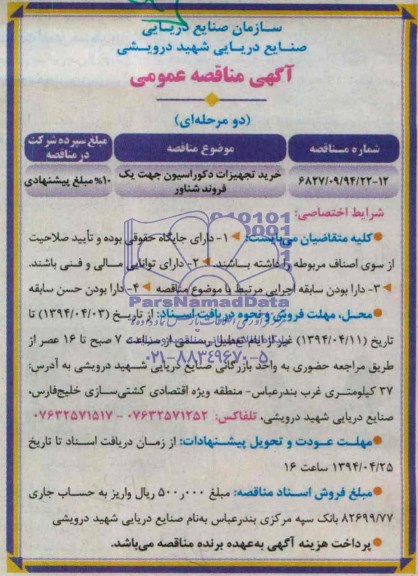 سازمان صنایع دریایی
صنایع دریایی شهید درویشی
آگهی مناقصه عمومی
(دو مرحله‌ای)
شماره مناقصه
موضوع مناقصه
مبلغ سپرده شرکت در مناقصه
۶۸۲۷/۰۹/۹۴/۲۲-۱۲
خرید تجهیزات دکوراسیون جهت یک فروند شناور
۱۰% مبلغ پیشنهادی
شرایط اختصاصی:
کلیه متقاضیان می‌بایست: ۱- دارای جایگاه حقوقی بوده و تأیید صلاحیت
از سوی اصناف مربوطه را داشته باشند. ۲- دارای توانایی مالی و فنی باشند.
۳- دارا بودن سابقه اجرایی مرتبط با موضوع مناقصه ۴- دارا بودن حسن سابقه
محل، مهلت فروش و نحوه دریافت اسناد: از تاریخ (۱۳۹۴/۰۴/۰۳) تا
تاریخ (۱۳۹۴/۰۴/۱۱) غیر از ایام تعطیل رسمی از ساعت ۷ صبح تا ۱۶ عصر از
طریق مراجعه حضوری به واحد بازرگانی صنایع دریایی شهید درویشی به آدرس:
۳۷ کیلومتری غرب بندرعباس- منطقه ویژه اقتصادی کشتی‌سازی خلیج‌فارس،
صنایع دریایی شهید درویشی. تلفاکس: ۰۷۶۳۲۵۷۱۲۵۲ - ۰۷۶۳۲۵۷۱۵۱۷
مهلت عودت و تحویل پیشنهادات: از زمان دریافت اسناد تا تاریخ
۱۳۹۴/۰۴/۲۵ ساعت ۱۶
مبلغ فروش اسناد مناقصه: مبلغ ۵۰۰٫۰۰۰ ریال واریز به حساب جاری
۸۲۶۹۹/۷۷ بانک سپه مرکزی بندرعباس به‌نام صنایع دریایی شهید درویشی
پرداخت هزینه آگهی به‌عهده برنده مناقصه می‌باشد.
ParsNamadData
۰۲۱-۸۸۳۴۹۶۷۰-۵